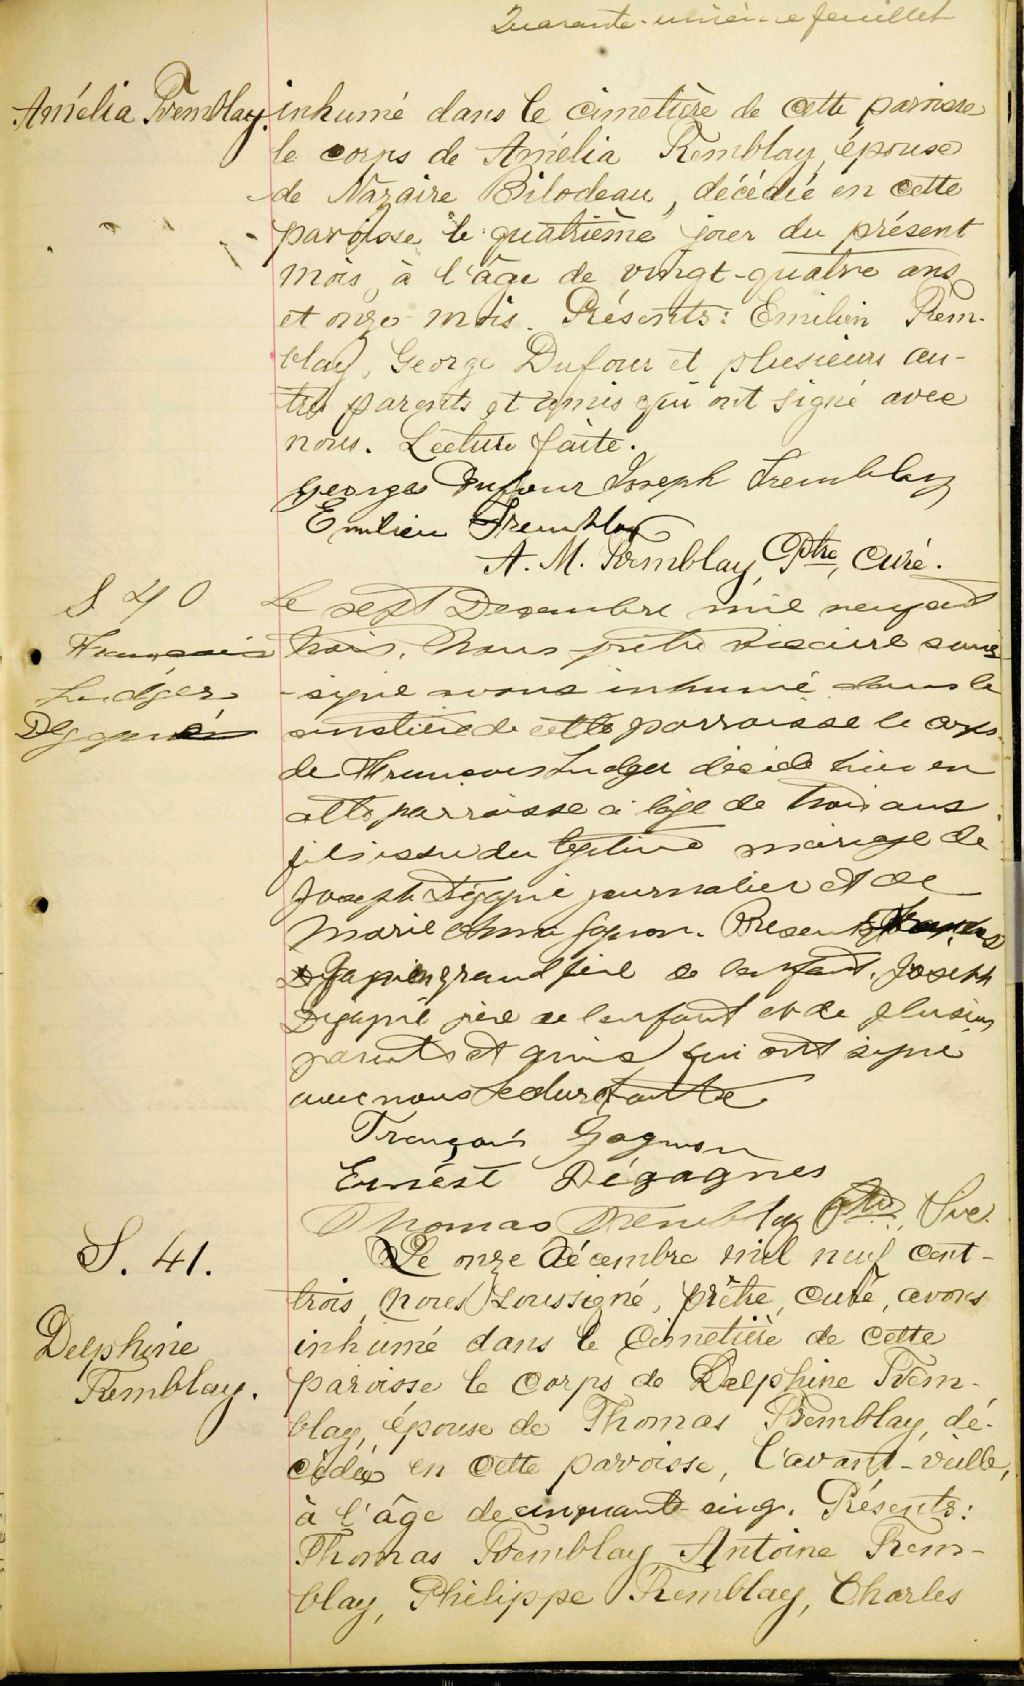 Quarante-unième feuillet
Amélia Tremblay. inhumé dans le cimetière de cette paroisse
le corps de Amélia Tremblay, épouse
de Nazaire Bilodeau, décédée en cette
paroisse le quatrième jour du présent
mois, à l'âge de vingt-quatre ans
et onze mois. Présents: Emilien Trem-
blay, George Dufour et plusieurs au-
tres parents et amis qui ont signé avec
nous. Lecture faite.
Georges Dufour Joseph Tremblay
Emilien Tremblay
A. M. Tremblay, Ptre, Curé.
S. 40
François
Ludger
Dégagné
Le sept Decembre mil neuf cent
trois, Nous prêtre vicaire sous
-signé avons inhumé dans le
cimetière de cette parroisse le corps
de François Ludger décédé hier en
cette parroisse a l'age de trois ans
fils issu du légitime mariage de
Joseph Dégagné journalier et de
Marie Anna Gagnon. Presents François
Dégagné grand père de l'enfant. Joseph
Dégagné père de l'enfant et de plusieurs
parents et amis qui ont signé
avec nous Lecture faite
François Gagnon
Ernest Dégagnés
Thomas Tremblay Ptre, Vic.
S. 41.
Delphine
Tremblay.
Le onze décembre mil neuf cent-
trois, Nous Soussigné, prêtre, curé, avons
inhumé dans le Cimetière de cette
paroisse le corps de Delphine Trem-
blay, épouse de Thomas Tremblay, dé-
cédée en cette paroisse, l'avant-veille,
à l'âge de cinquante cinq. Présents:
Thomas Tremblay Antoine Trem-
blay, Philippe Tremblay, Charles